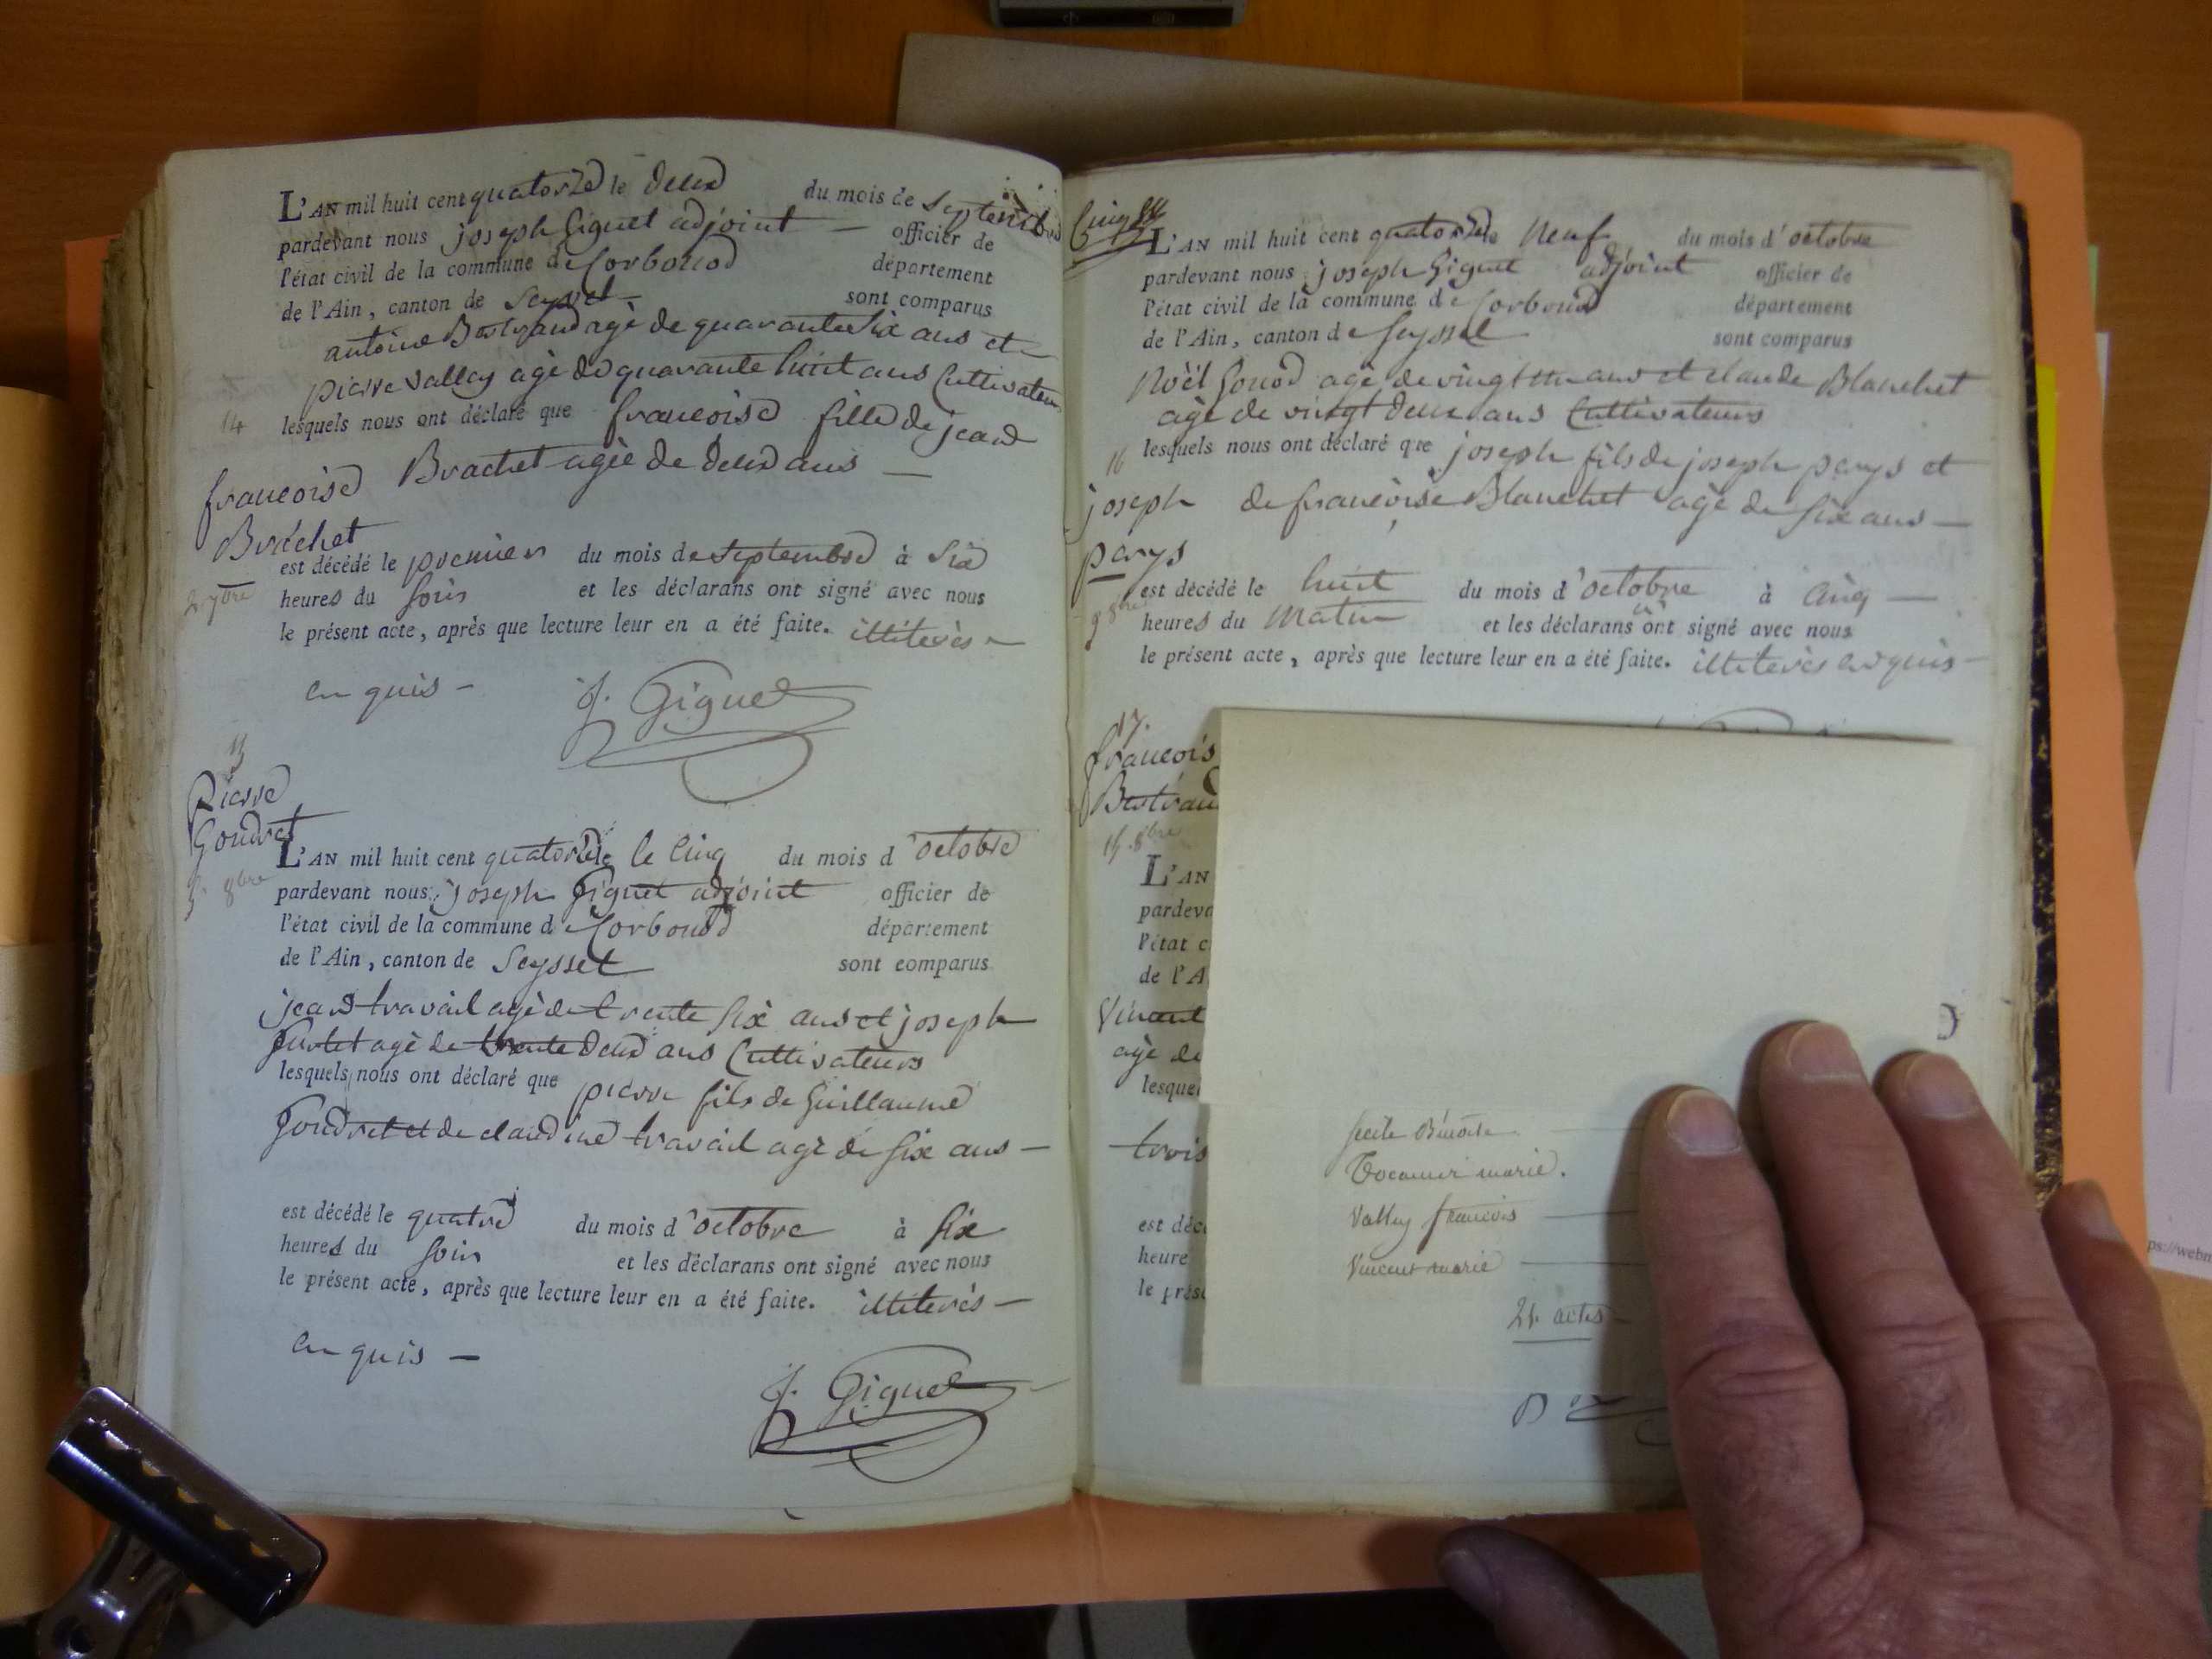 L'AN mil huit cent quatorze le deux du mois de septembre
pardevant nous joseph Giguet adjoint — officier de
l'état civil de la commune de Corbonod département
de l'Ain, canton de Seyssel — sont comparus
antoine Bertrand agé de quarante six ans et
pierre vallay agé de quarante huit ans Cultivateurs
14 lesquels nous ont déclaré que francoise fille de jean
francoise Brachet agée de deux ans —
Brachet
est décédé le premier du mois de septembre à six
2. 7bre heures du soir et les déclarans ont signé avec nous
le présent acte, après que lecture leur en a été faite. illiterés —
enquis —
J. Giguet
15
Pierre
Goudret
L'AN mil huit cent quatorze le cinq du mois d'octobre
5. 8bre pardevant nous joseph Giguet adjoint officier de
l'état civil de la commune de Corbonod département
de l'Ain, canton de Seyssel sont comparus
jean travail agé de trente six ans et joseph
agé de trente deux ans Cultivateurs
lesquels nous ont déclaré que pierre fils de Guillaume
Goudret et de claudine travail agé de six ans —
est décédé le quatre du mois d'octobre à six
heures du soir et les déclarans ont signé avec nous
le présent acte, après que lecture leur en a été faite. illiterés —
enquis —
J. Giguet
L'AN mil huit cent quatorze le neuf du mois d'octobre
pardevant nous joseph Giguet adjoint officier de
l'état civil de la commune de Corbonod département
de l'Ain, canton de Seyssel sont comparus
Noël Gonod agé de vingt un ans et claude Blanchet
agé de vingt deux ans Cultivateurs
16 lesquels nous ont déclaré que joseph fils de joseph perys et
joseph de francoise Blanchet agé de six ans —
perys
est décédé le huit du mois d'octobre à cinq —
9 8bre heures du matin et les déclarans ont signé avec nous
le présent acte, après que lecture leur en a été faite. illiterés enquis —
17.
francois
Bertrand
15. 8bre
L'AN
pardeva
l'état c
de l'A
Vincent
agé de
lesque
trois
est déc
heure
le prés
Benoite
marie.
Vallay francois
Vincent marie
21. actes
ps://webm